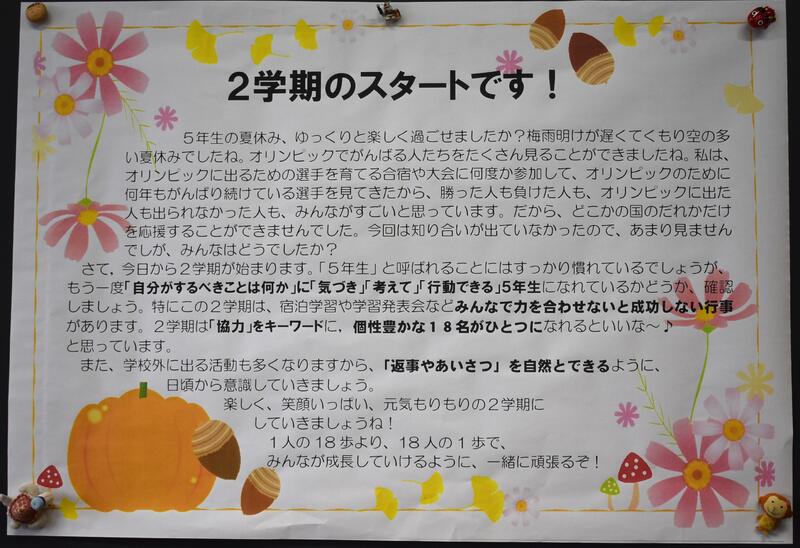 ２学期のスタートです！
５年生の夏休み、ゆっくりと楽しく過ごせましたか？梅雨明けが遅くてくもり空の多
い夏休みでしたね。オリンピックでがんばる人たちをたくさん見ることができましたね。私は、
オリンピックに出るための選手を育てる合宿や大会に何度か参加して、オリンピックのために
何年もがんばり続けている選手を見てきたから、勝った人も負けた人も、オリンピックに出た
人も出られなかった人も、みんながすごいと思っています。だから、どこかの国のだれかだけ
を応援することができませんでした。今回は知り合いが出ていなかったので、あまり見ません
でしが、みんなはどうでしたか？
さて、今日から２学期が始まります。「５年生」と呼ばれることにはすっかり慣れているでしょうが、
もう一度「自分がするべきことは何か」に「気づき」「考えて」「行動できる」５年生になれているかどうか、確認
しましょう。特にこの２学期は、宿泊学習や学習発表会などみんなで力を合わせないと成功しない行事
があります。２学期は「協力」をキーワードに，個性豊かな１８名がひとつになれるといいな～♪
と思っています。
また、学校外に出る活動も多くなりますから、「返事やあいさつ」を自然とできるように、
日頃から意識していきましょう。
楽しく、笑顔いっぱい、元気もりもりの２学期に
していきましょうね！
１人の１８歩より、１８人の１歩で、
みんなが成長していけるように、一緒に頑張るぞ！